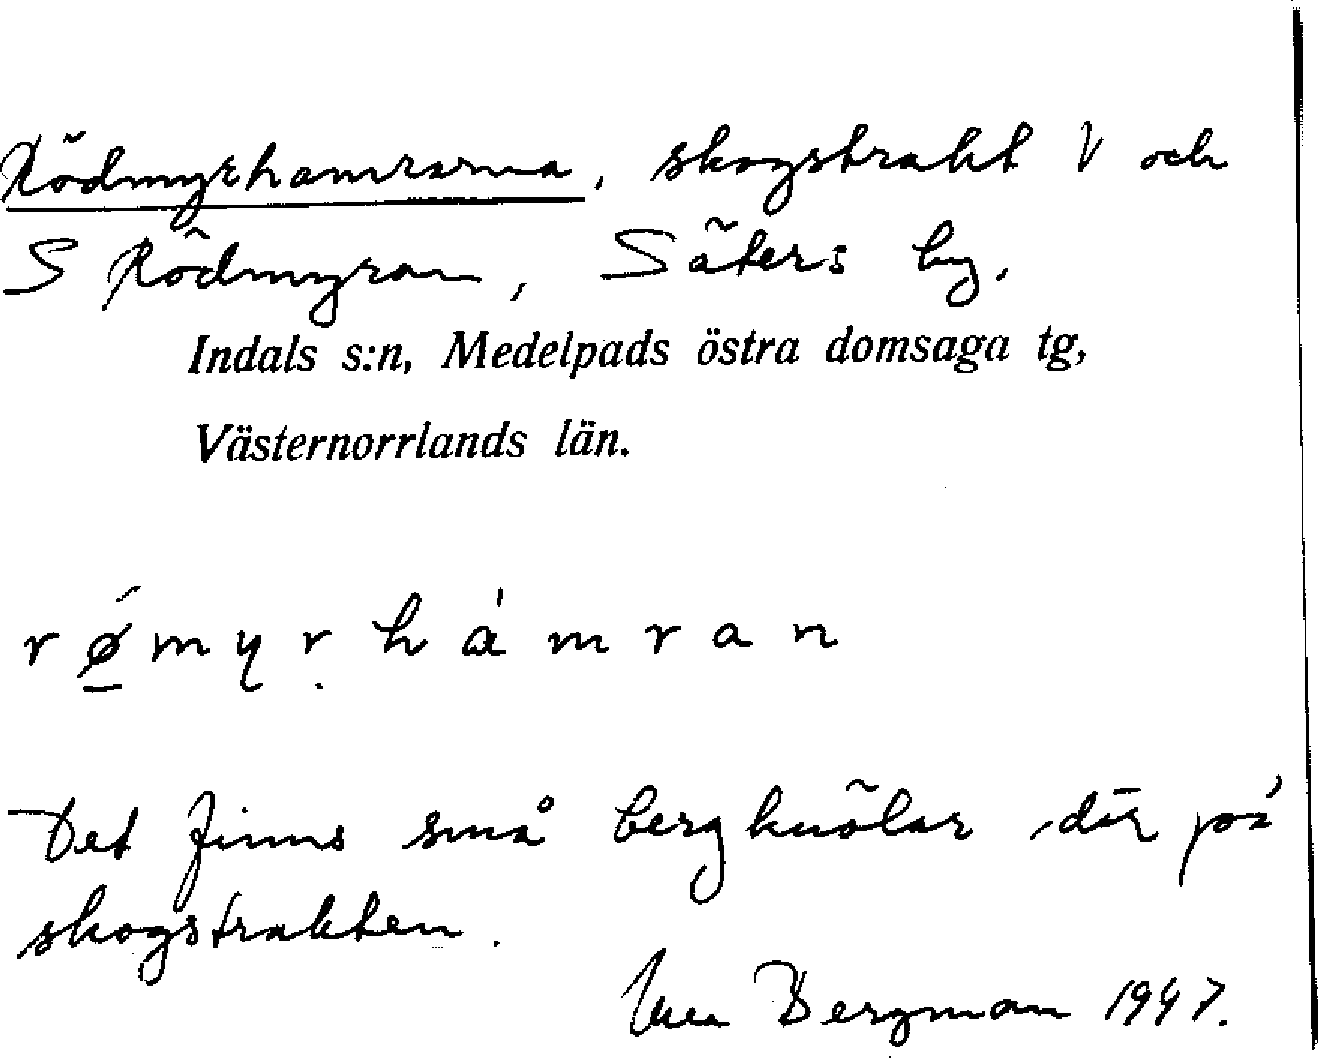 Rödmyrhamrarna, skogstrakt V och
S Rödmyran, Säters by.
Indals s:n, Medelpads östra domsaga tg,
Västernorrlands län.
rǿ̱myṛhámran
Det finns små bergknölar där på
skogstrakten.
Bergman 1947.